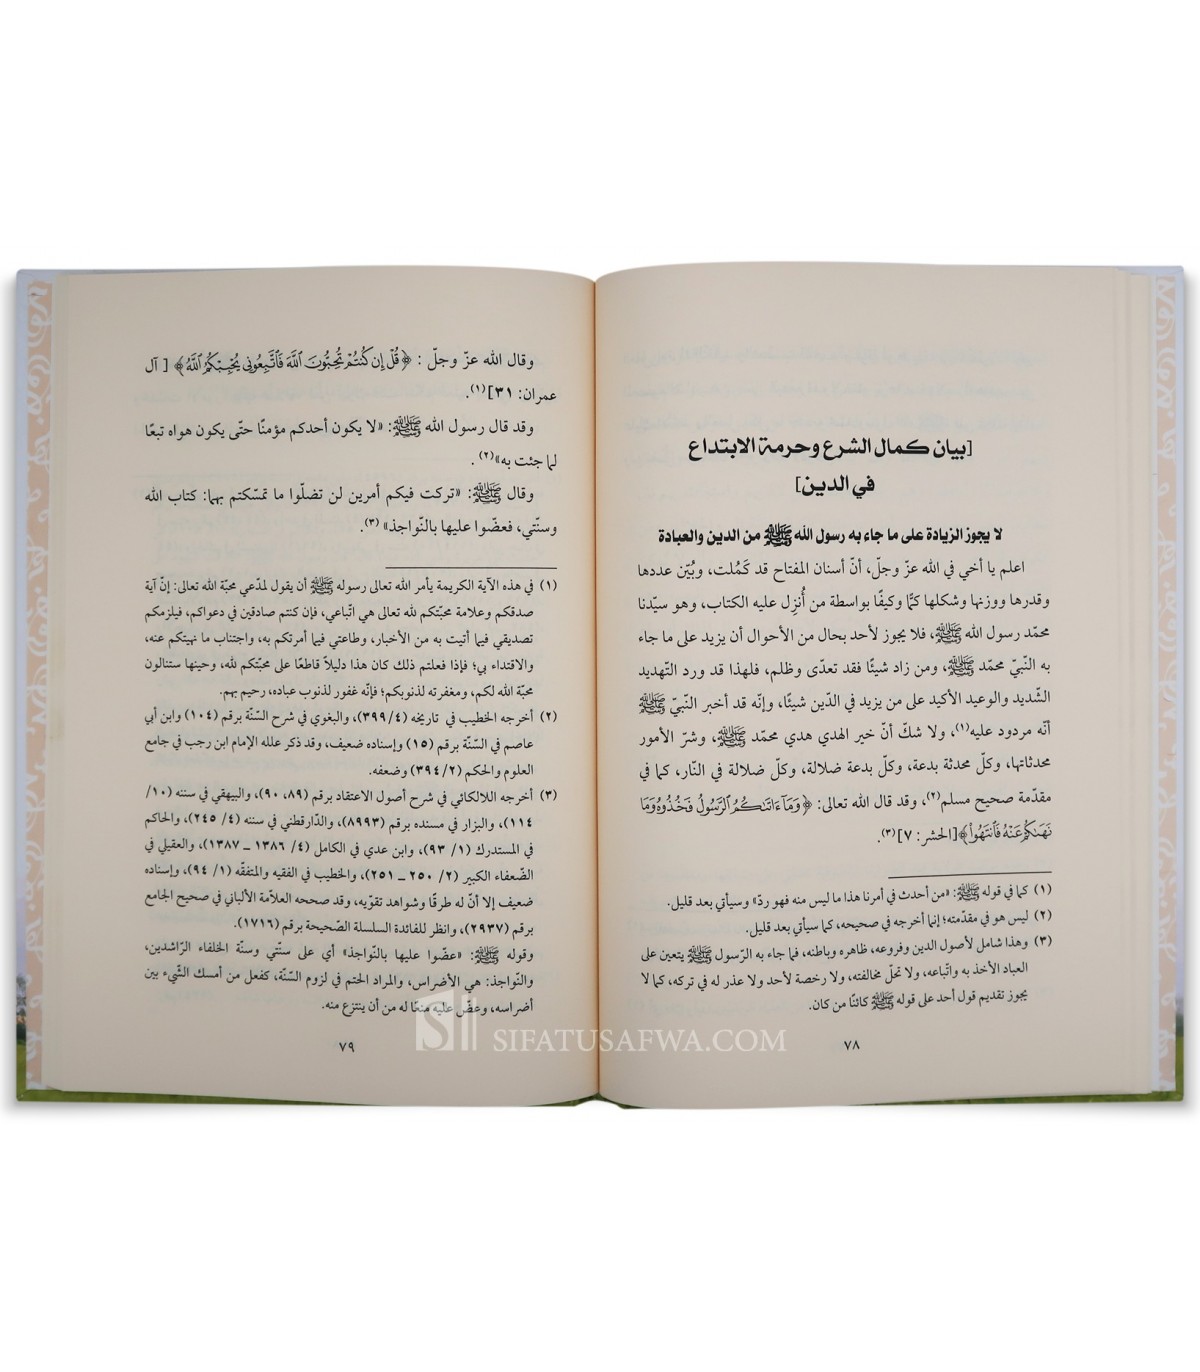 [بيان كمال الشرع وحرمة الابتداع
في الدين]
لا يجوز الزيادة على ما جاء به رسول الله ﷺ من الدين والعبادة
اعلم يا أخي في الله عزّ وجلّ، أنّ أسنان المفتاح قد كَمُلت، وبُيّن عددها
وقدرها ووزنها وشكلها كمًّا وكيفًا بواسطة من أُنزِل عليه الكتاب، وهو سيّدنا
محمّد رسول الله ﷺ، فلا يجوز لأحد بحال من الأحوال أن يزيد على ما جاء
به النّبيّ محمّد ﷺ، ومن زاد شيئًا فقد تعدّى وظلم، فلهذا قد ورد التّهديد
الشّديد والوعيد الأكيد على من يزيد في الدّين شيئًا، وإنّه قد أخبر النّبيّ ﷺ
أنّه مردود عليه(١)، ولا شكّ أنّ خير الهدي هدي محمّد ﷺ، وشرّ الأمور
محدثاتها، وكلّ محدثة بدعة، وكلّ بدعة ضلالة، وكلّ ضلالة في النّار، كما في
مقدّمة صحيح مسلم(٢)، وقد قال الله تعالى: ﴿وَمَآ ءَاتَىٰكُمُ ٱلرَّسُولُ فَخُذُوهُ وَمَا
نَهَىٰكُمْ عَنْهُ فَٱنتَهُوا۟﴾[الحشر: ٧](٣).
(١) كما في قوله ﷺ: «من أحدث في أمرنا هذا ما ليس منه فهو ردّ» وسيأتي بعد قليل.
(٢) ليس هو في مقدّمته؛ إنما أخرجه في صحيحه، كما سيأتي بعد قليل.
(٣) وهذا شامل لأصول الدين وفروعه، ظاهره وباطنه، فما جاء به الرّسول ﷺ يتعين على
العباد الأخذ به واتّباعه، ولا تحلّ مخالفته، ولا رخصة لأحد ولا عذر له في تركه، كما لا
يجوز تقديم قول أحد على قوله ﷺ كائنًا من كان.
٧٨
وقال الله عزّ وجلّ : ﴿قُلْ إِن كُنتُمْ تُحِبُّونَ ٱللَّهَ فَٱتَّبِعُونِى يُحْبِبْكُمُ ٱللَّهُ﴾ [ آل
عمران: ٣١](١).
وقد قال رسول الله ﷺ: «لا يكون أحدكم مؤمنًا حتّى يكون هواه تبعًا
لما جئت به»(٢) .
وقال ﷺ: «تركت فيكم أمرين لن تضلّوا ما تمسّكتم بهما: كتاب الله
وسنّتي، فعضّوا عليها بالنّواجذ» (٣).
(١) في هذه الآية الكريمة يأمر الله تعالى رسوله ﷺ أن يقول لمدّعي محبّة الله تعالى: إنّ آية
صدقكم وعلامة محبّتكم لله تعالى هي اتّباعي، فإن كنتم صادقين في دعواكم، فيلزمكم
تصديقي فيما أتيت به من الأخبار، وطاعتي فيما أمرتكم به، واجتناب ما نهيتكم عنه،
والاقتداء بي؛ فإذا فعلتم ذلك كان هذا دليلاً قاطعًا على محبّتكم لله، وحينها ستنالون
محبّة الله لكم، ومغفرته لذنوبكم؛ فإنّه غفور لذنوب عباده، رحيم بهم.
(٢) أخرجه الخطيب في تاريخه (٤/ ٣٩٩)، والبغوي في شرح السّنّة برقم (١٠٤) وابن أبي
عاصم في السّنّة برقم (١٥) وإسناده ضعيف، وقد ذكر علله الإمام ابن رجب في جامع
العلوم والحكم (٢/ ٣٩٤) وضعفه.
(٣) أخرجه اللالكائي في شرح أصول الاعتقاد برقم (٨٩، ٩٠)، والبيهقي في سننه (١٠/
١١٤)، والبزار في مسنده برقم (٨٩٩٣)، والدّارقطني في سننه (٤/ ٢٤٥)، والحاكم
في المستدرك (١/ ٩٣)، وابن عدي في الكامل (٤/ ١٣٨٦ ـ ١٣٨٧)، والعقيلي في
الضّعفاء الكبير (٢/ ٢٥٠ ـ ٢٥١)، والخطيب في الفقيه والمتفقّه (١/ ٩٤)، وإسناده
ضعيف إلا أنّ له طرقًا وشواهد تقوّيه، وقد صححه العلاّمة الألباني في صحيح الجامع
برقم (٢٩٣٧)، وانظر للفائدة السلسلة الصّحيحة برقم (١٧١٦).
وقوله ﷺ: «عضّوا عليها بالنّواجذ» أي على سنّتي وسنّة الخلفاء الرّاشدين،
والنّواجذ: هي الأضراس، والمراد الحتم في لزوم السّنّة، كفعل من أمسك الشّيء بين
أضراسه، وعضّ عليه منعًا له من أن ينتزع منه.
٧٩
SIFATUSAFWA.COM